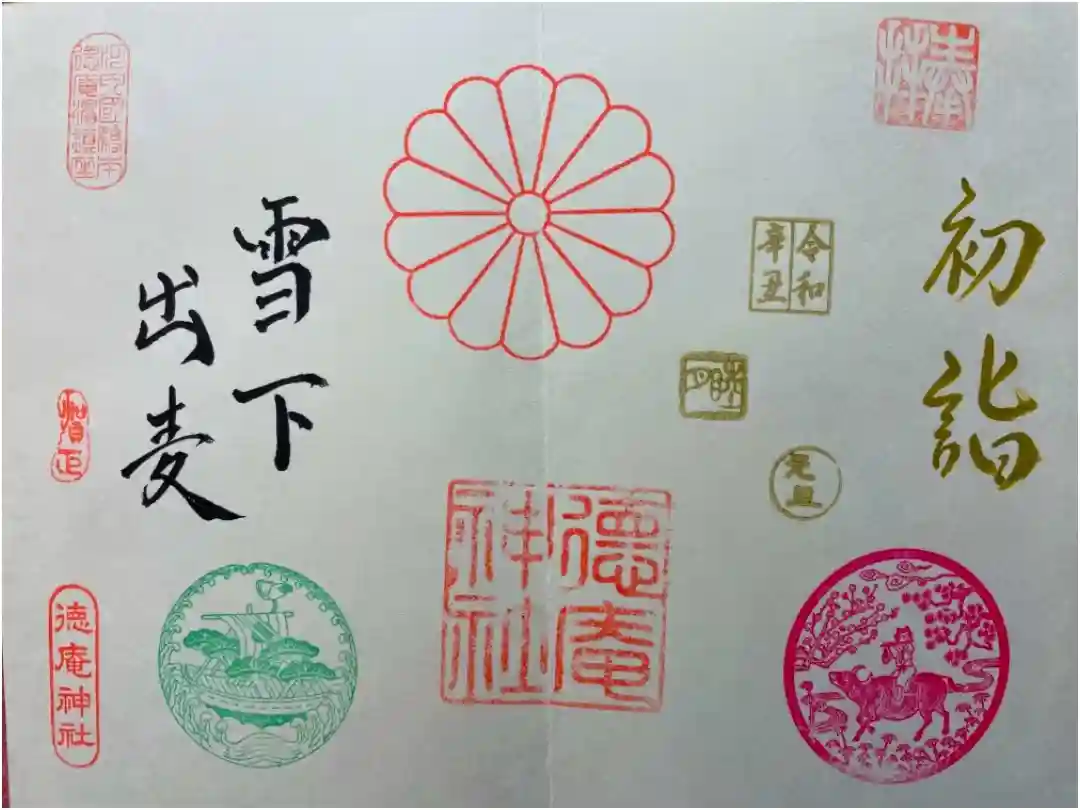 奉拝
初詣
令和
辛丑
睦月
元旦
德庵
神社
雪下
出麦
賀正
徳庵神社